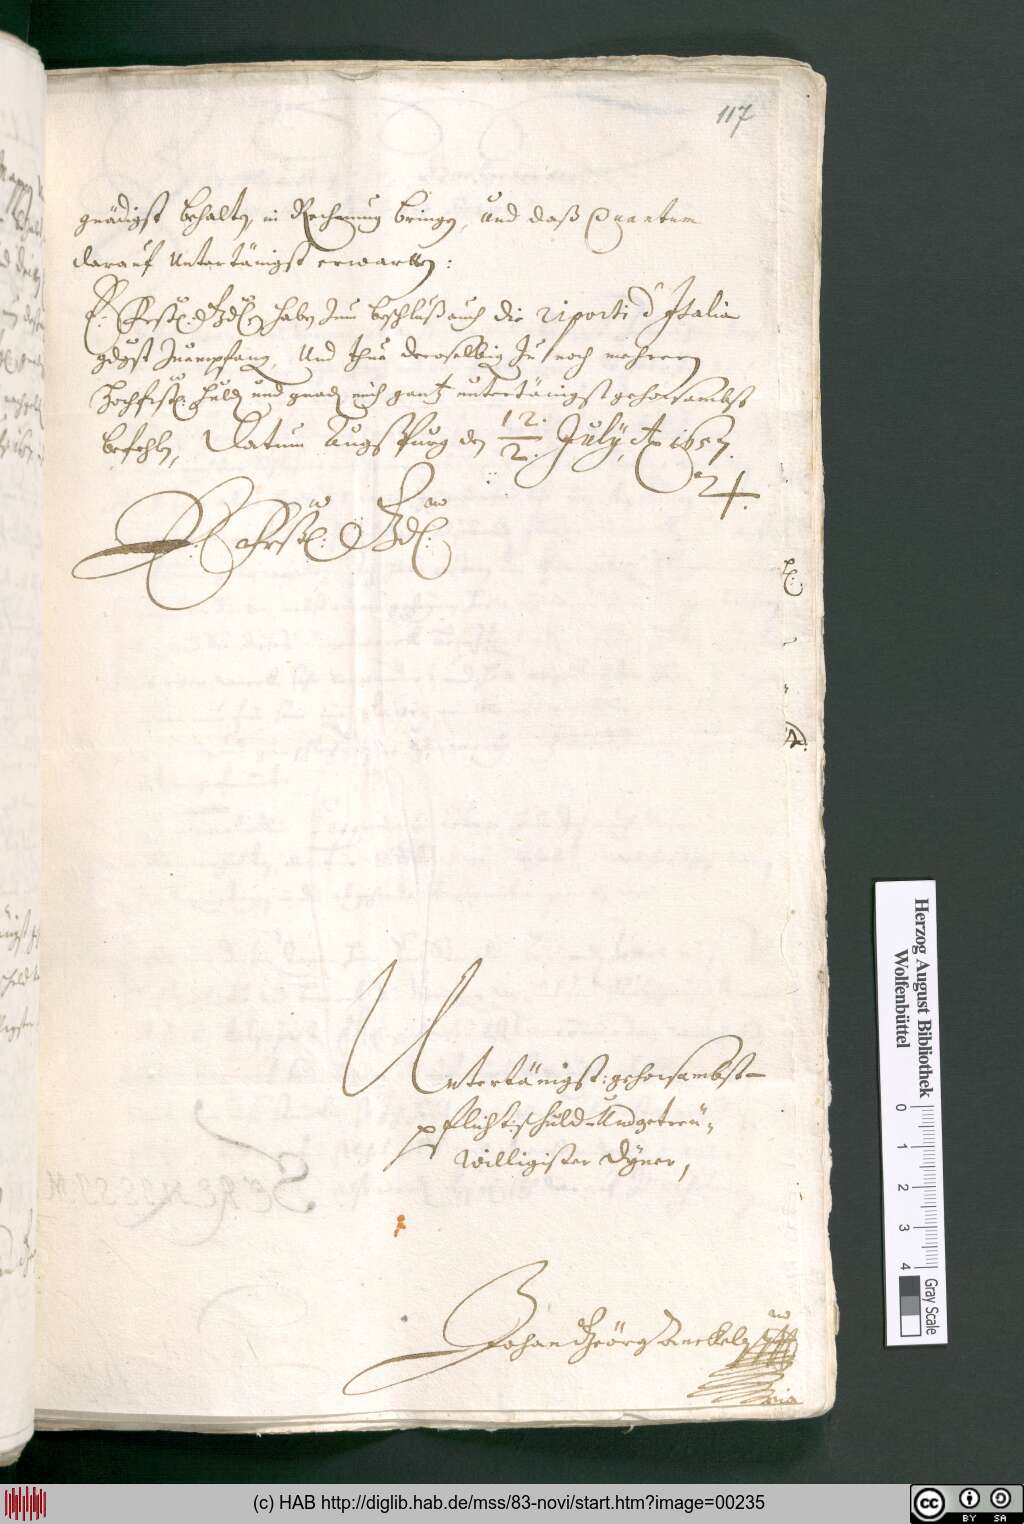 117
gnädigst behalten, in Rechnung bringen, und daß Quantum
darauf Untertänigst erwartten:
E: Frstl: Gdl: haben zum beschluß auch die riporti d'Italia
gdgst zuempfang, Und thue deroselbig zu noch mehrern
Hochfrstl: huld und gnad mich gantz untertänigst gehorsambst
befehln, Datum Augspurg den 12./2. July, Ao 1657.
24.
E: Frstl: Gdl:
Untertänigst: gehorsambst-
pflichtschuld- Und getreu-
willigister Dyner,
Johan Geörg Anckel
Herzog August Bibliothek
Wolfenbüttel
0 1 2 3 4
Gray Scale
(c) HAB http://diglib.hab.de/mss/83-novi/start.htm?image=00235
cc BY SA